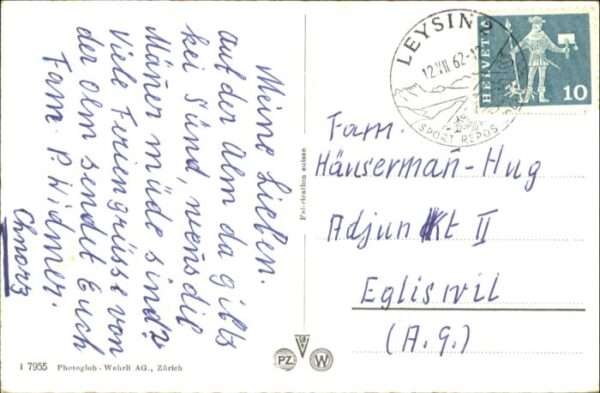 Meine Lieben.
auf der Alm da gibts
kei Sünd, weñs dil
Mäñer müde sind?
Viele Feriengrüsse von
der Alm sendet Euch
Fam. P. Widmer.
I 7955 Photoglob-Wehrli AG., Zürich
LEYSIN
12.VII.62-1
SPORT REPOS
HELVETIA
10
PZ
W
Fam.
Häuserman-Hug
Adjunkt II
Egliswil
(A.G.)